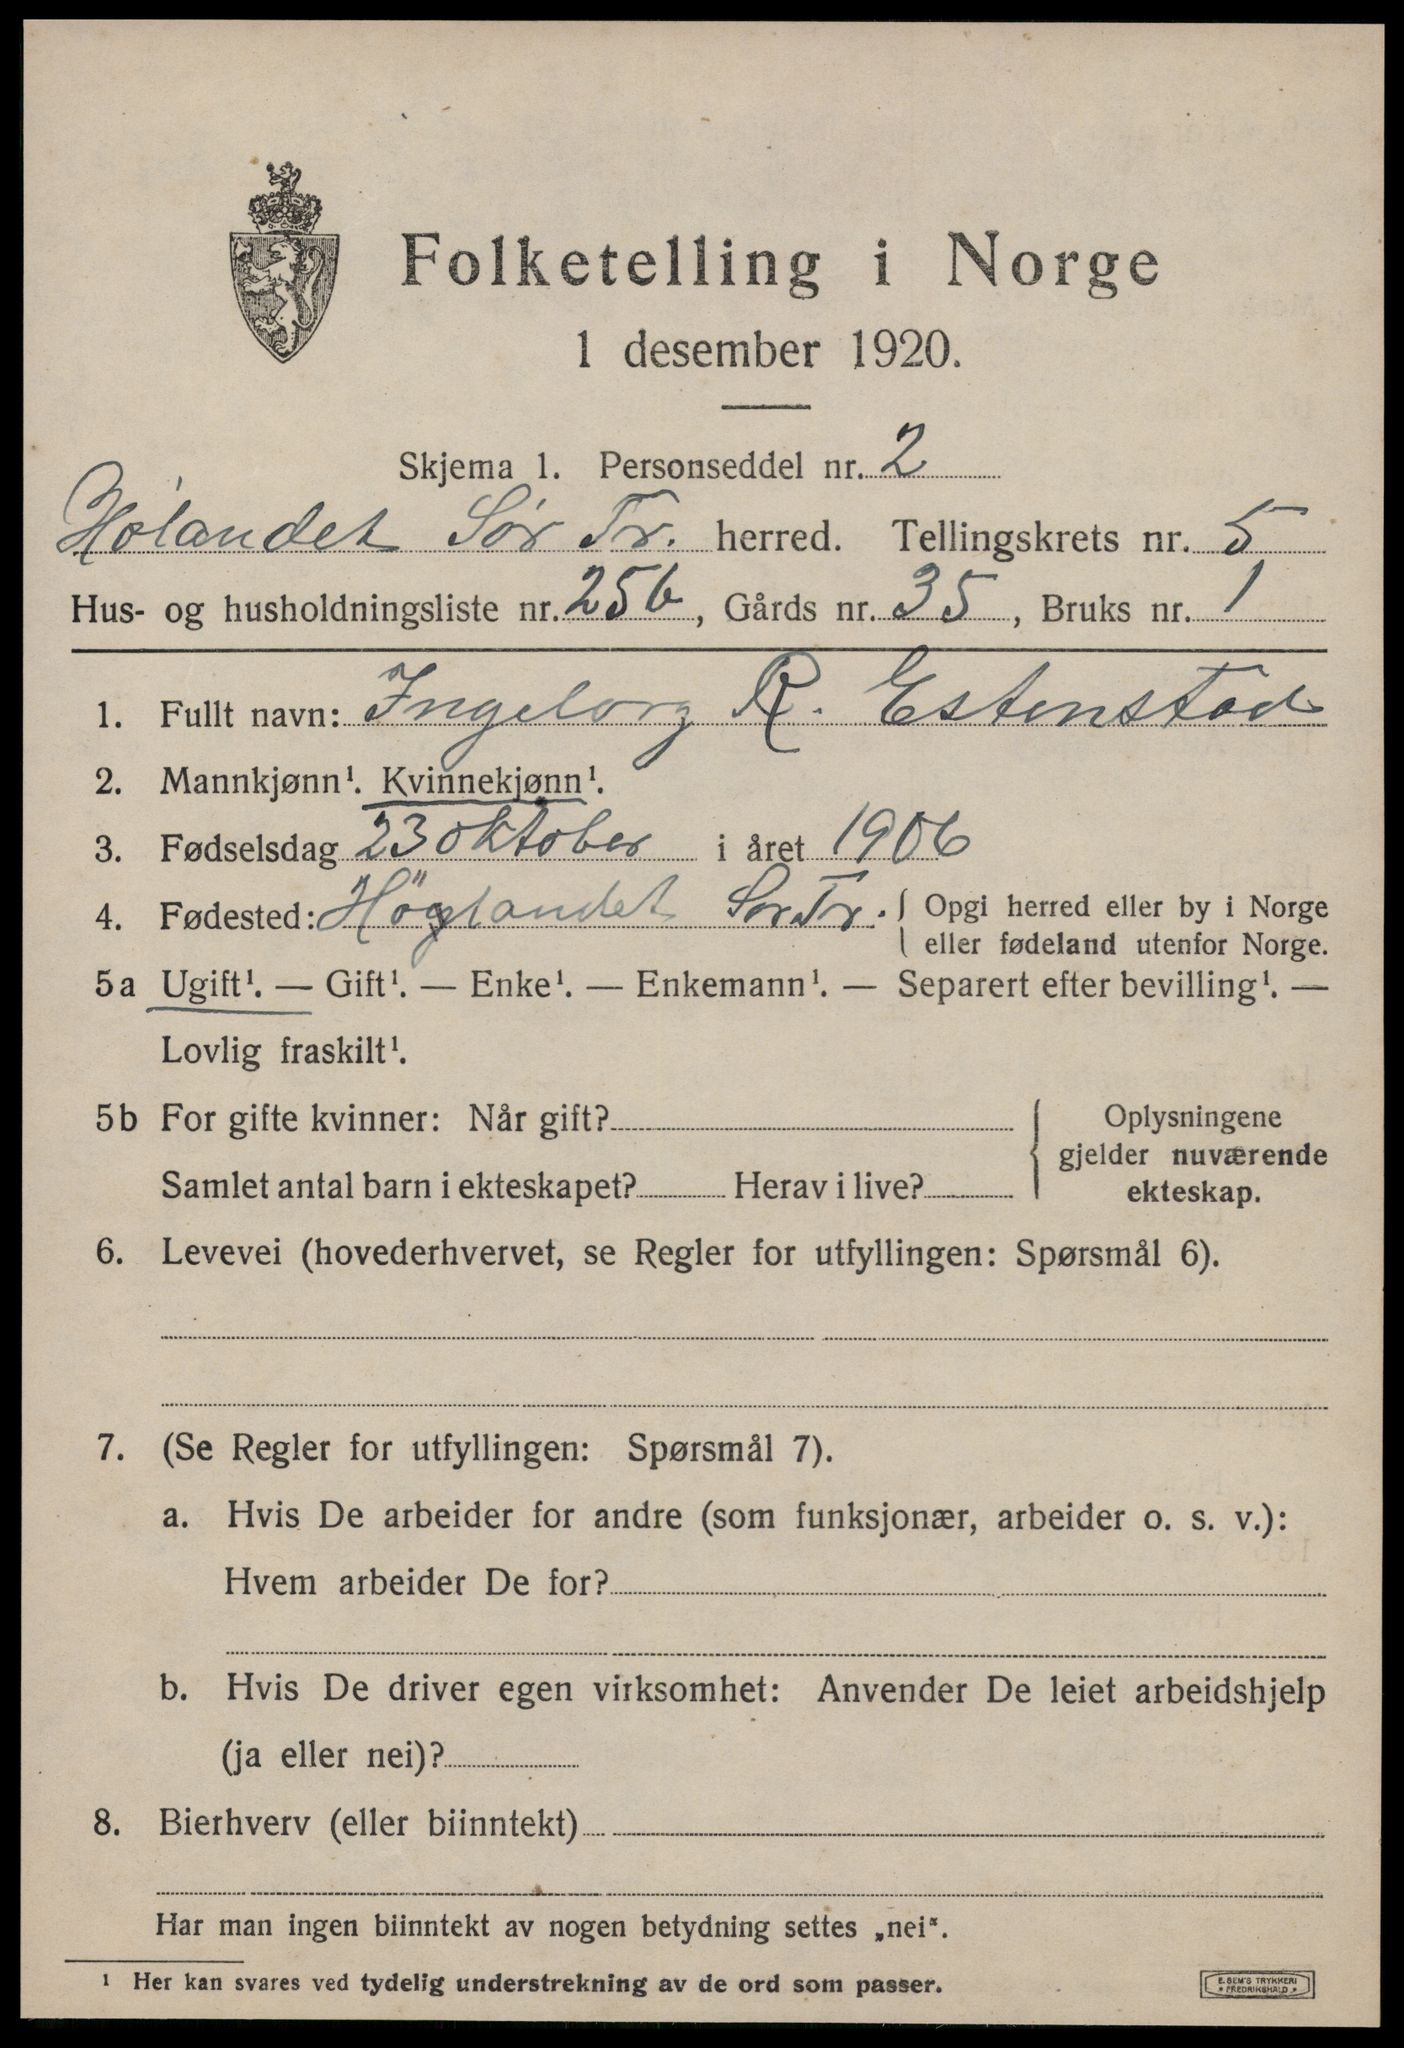 Folketelling i Norge
1 desember 1920.
Skjema 1. Personseddel nr. 2
Hølandet Sør Tr. herred. Tellingskrets nr. 5
Hus- og husholdningsliste nr. 256, Gårds nr. 35, Bruks nr. 1
1. Fullt navn: Ingeborg R. Estenstad
2. Mannkjønn¹. Kvinnekjønn¹.
3. Fødselsdag 23 oktober i året 1906
4. Fødested: Höylandet Sør Tr. Opgi herred eller by i Norge
eller fødeland utenfor Norge.
5a Ugift¹. — Gift¹. — Enke¹. — Enkemann¹. — Separert efter bevilling¹. —
Lovlig fraskilt¹.
5b For gifte kvinner: Når gift?
Samlet antal barn i ekteskapet? Herav i live?
Oplysningene
gjelder nuværende
ekteskap.
6. Levevei (hovederhvervet, se Regler for utfyllingen: Spørsmål 6).
7. (Se Regler for utfyllingen: Spørsmål 7).
a. Hvis De arbeider for andre (som funksjonær, arbeider o. s. v.):
Hvem arbeider De for?
b. Hvis De driver egen virksomhet: Anvender De leiet arbeidshjelp
(ja eller nei)?
8. Bierhverv (eller biinntekt)
Har man ingen biinntekt av nogen betydning settes „nei“.
¹ Her kan svares ved tydelig understrekning av de ord som passer.
E. SEM'S TRYKKERI
* FREDRIKSHALD *